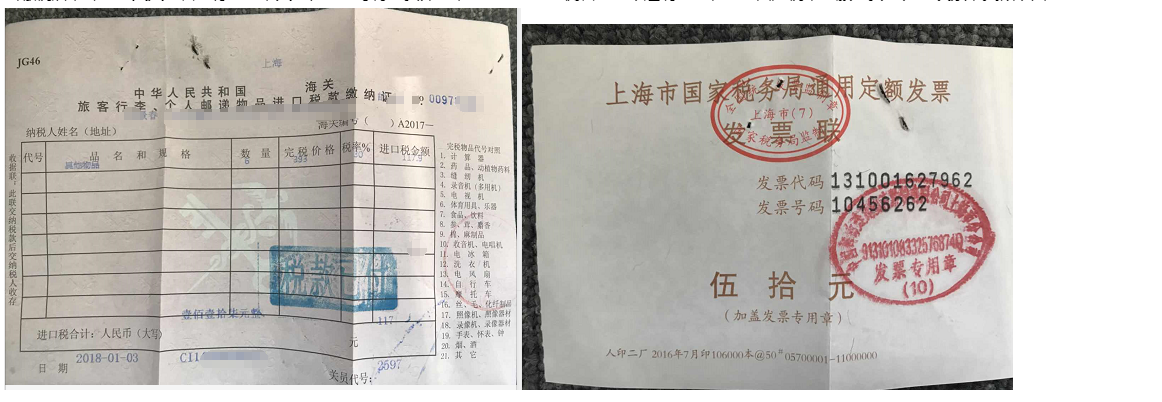 JG46
上海
中华人民共和国 海关
旅客行李、个人邮递物品进口税款缴纳证
纳税人姓名（地址）
A2017-
代号 品名和规格 数量 完税价格 税率% 进口税金额
其他物品 393 30 117.9
收据联：此联交纳税款后交纳税人收存
壹佰壹拾柒元整
117
进口税合计：人民币（大写） 元
日期 2018-01-03
关员代号：2597
完税物品代号对照
1. 计算器
2. 药品、动植物药料
3. 缝纫机
4. 录音机（多用机）
5. 电视机
6. 体育用具、乐器
7. 食品、饮料
8. 参、茸、麝香
9. 棉、麻制品
10. 收音机、电唱机
11. 电冰箱
12. 洗衣机
13. 电风扇
14. 自行车
15. 摩托车
16. 丝、毛、化纤制品
17. 照像机、照像器材
18. 录像机、录像器材
19. 手表、怀表、钟
20. 烟、酒
21. 其它
上海市国家税务局通用定额发票
上海市(7)
国家税务局监制
发票联
发票代码 131001627962
发票号码 10456262
发票专用章
(10)
伍拾元
（加盖发票专用章）
人印二厂 2016年7月印106000本@50# 05700001-11000000